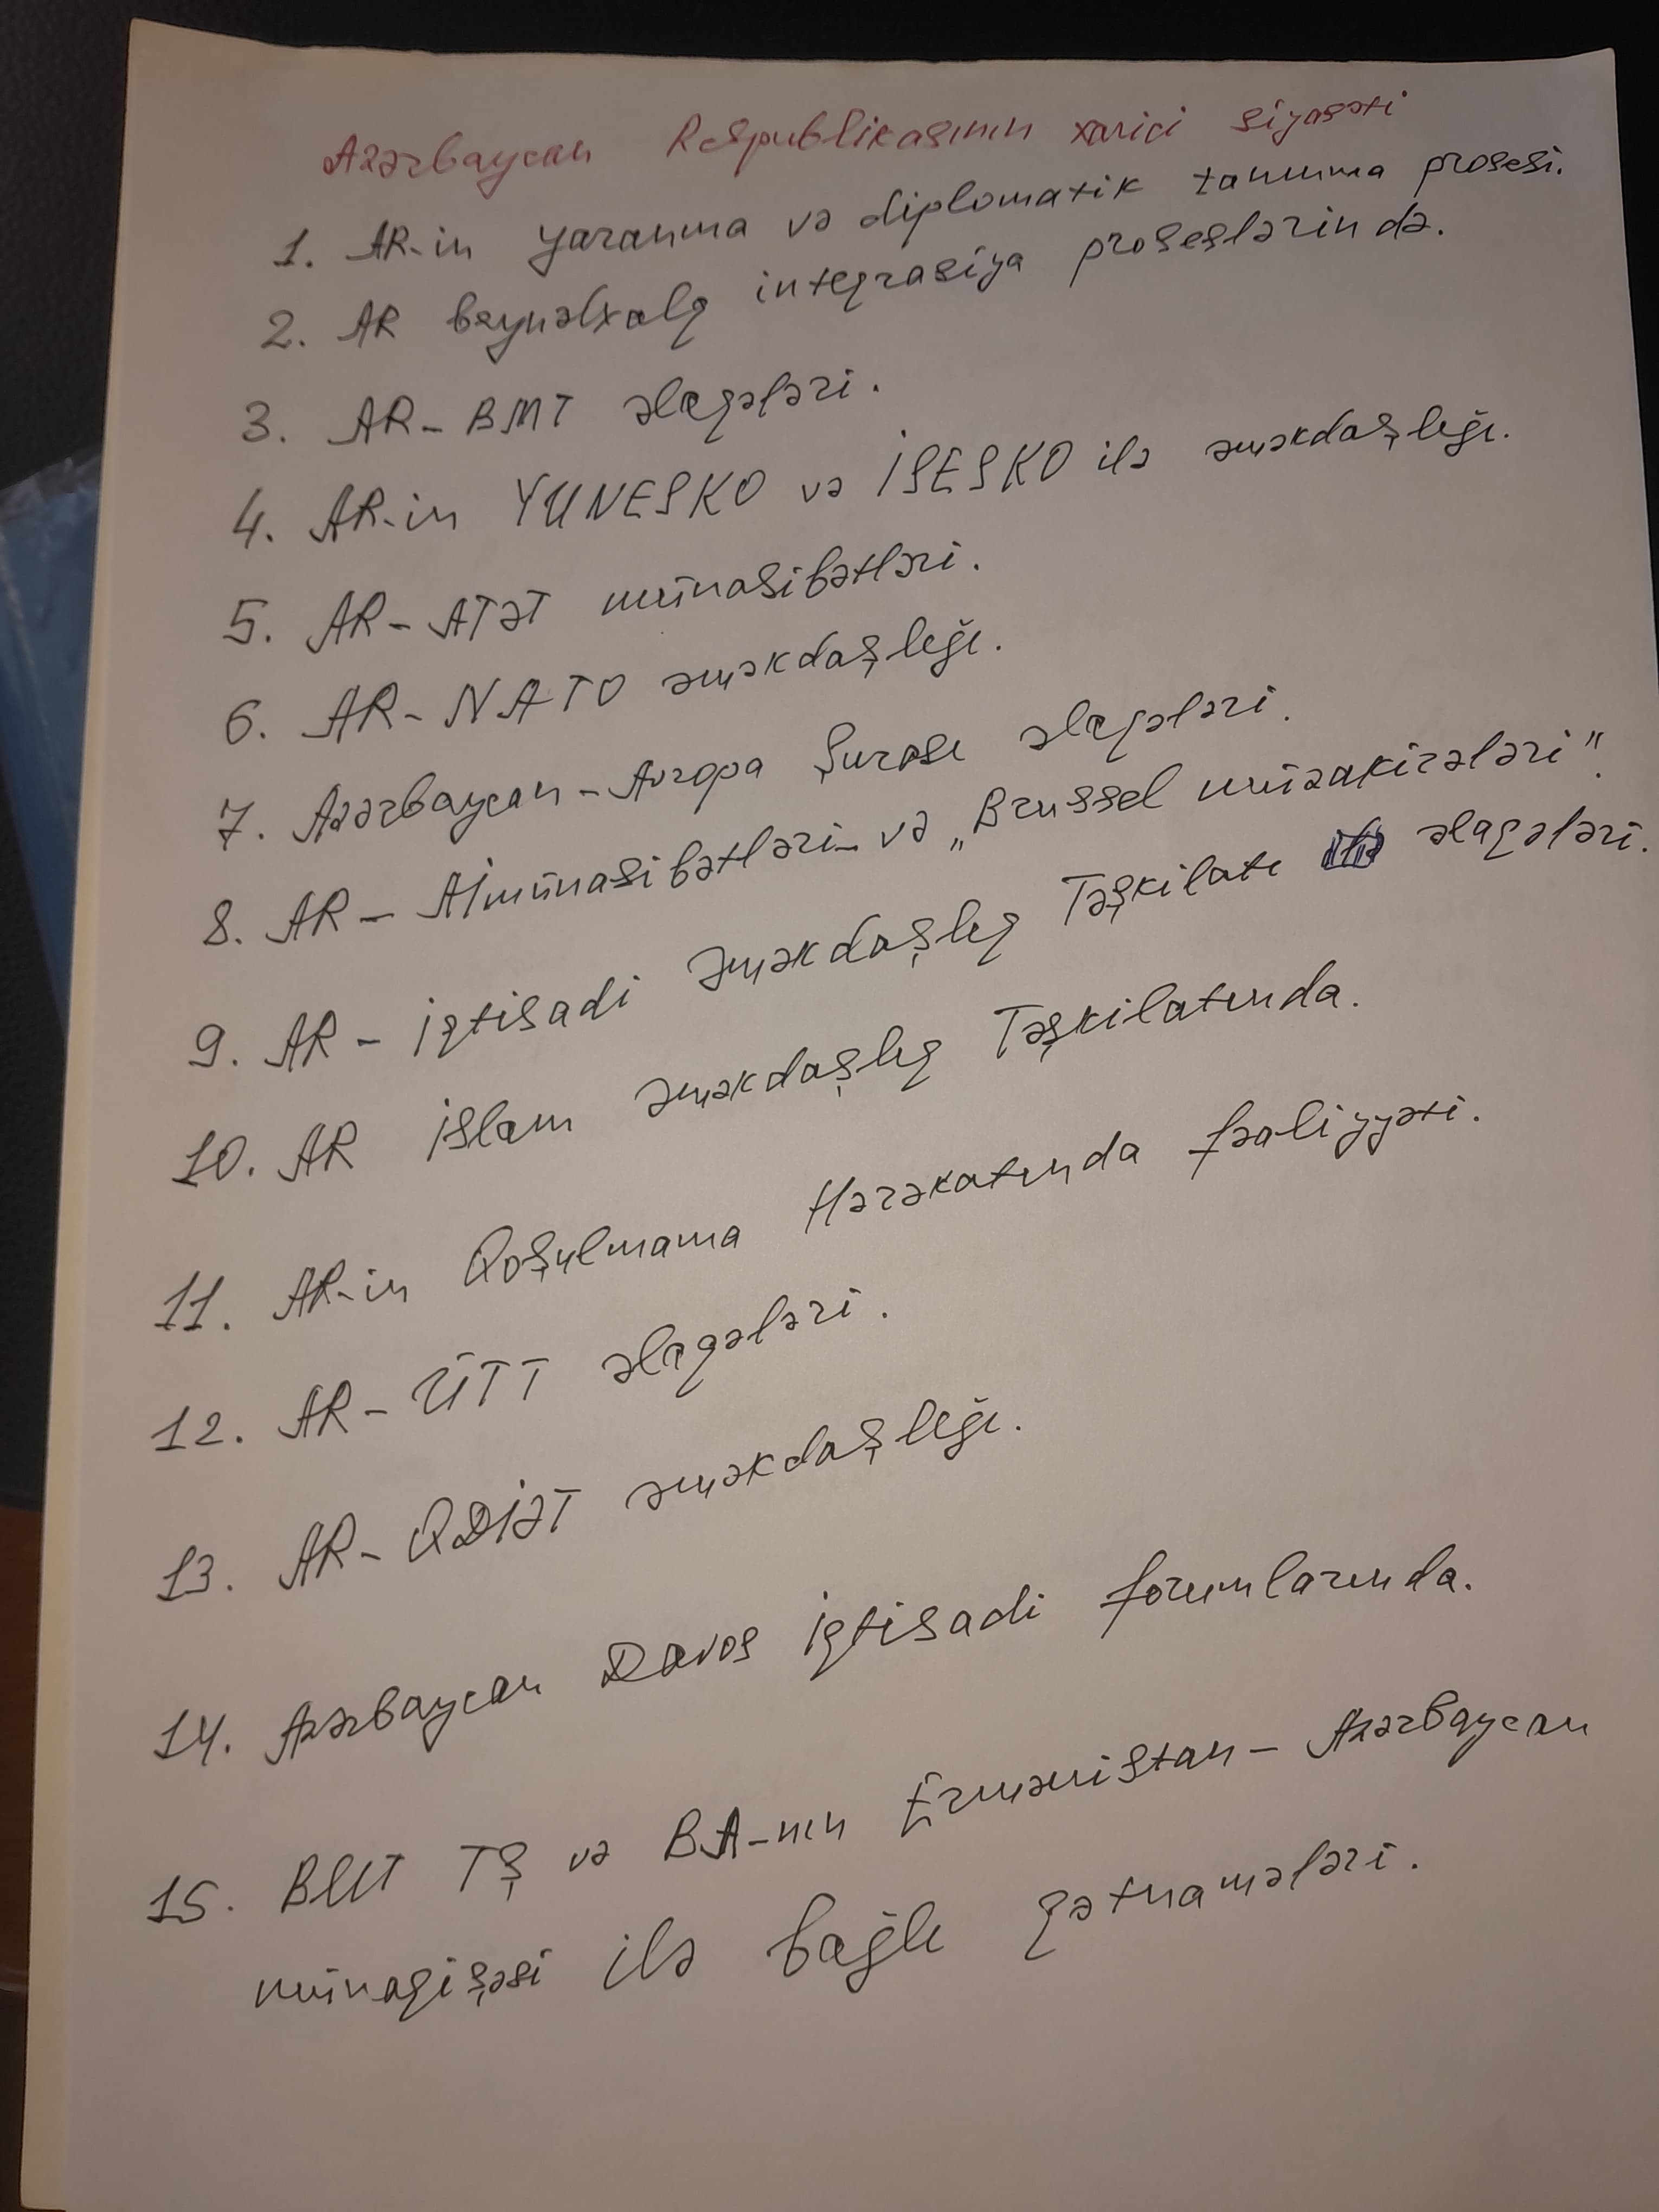 Azərbaycan Respublikasının xarici siyasəti
1. AR-in yaranma və diplomatik tanınma prosesi.
2. AR beynəlxalq inteqrasiya proseslərində.
3. AR-BMT əlaqələri.
4. AR-in YUNESKO və İSESKO ilə əməkdaşlığı.
5. AR-ATƏT münasibətləri.
6. AR-NATO əməkdaşlığı.
7. Azərbaycan-Avropa Şurası əlaqələri.
8. AR-Aİ münasibətləri və „Brussel müzakirələri".
9. AR - İqtisadi Əməkdaşlıq Təşkilatı əlaqələri.
10. AR İslam Əməkdaşlıq Təşkilatında.
11. AR-in Qoşulmama Hərəkatında fəaliyyəti.
12. AR-ÜTT əlaqələri.
13. AR-QDİƏT əməkdaşlığı.
14. Azərbaycan Davos İqtisadi forumlarında.
15. BMT TŞ və BA-nın Ermənistan-Azərbaycan
münaqişəsi ilə bağlı qətnamələri.